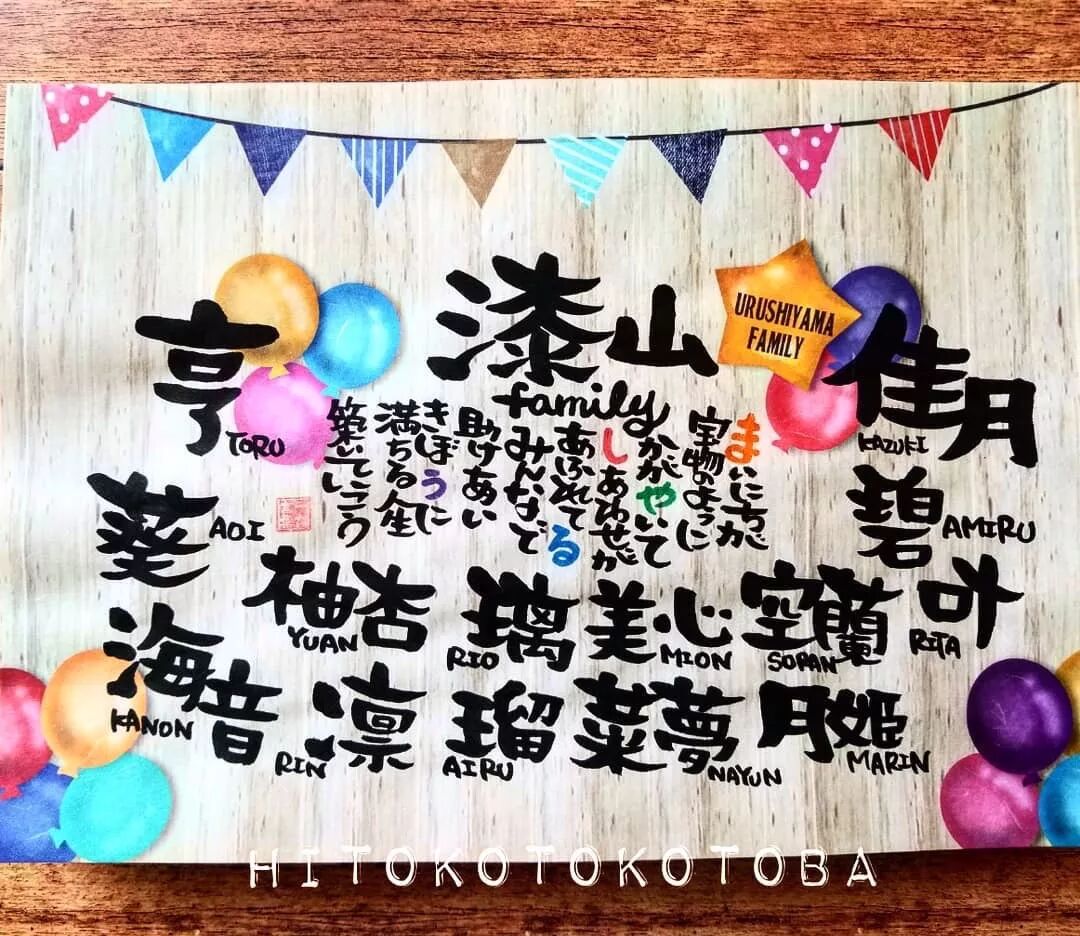 漆山
family
URUSHIYAMA
FAMILY
亨
TORU
佳月
KAZUKI
まいにちが
宝物のように
かがやいて
しあわせが
あふれてる
みんなで
助けあい
きぼうに
満ちる人生
築いていこう
葵
AOI
碧
AMIRU
柚杏
YUAN
璃
RIO
美心
MION
空蘭
SORAN
叶
RITA
海音
KANON
凛
RIN
瑠
AIRU
菜夢
NAYUN
月姫
MARIN
HITOKOTOKOTOBA